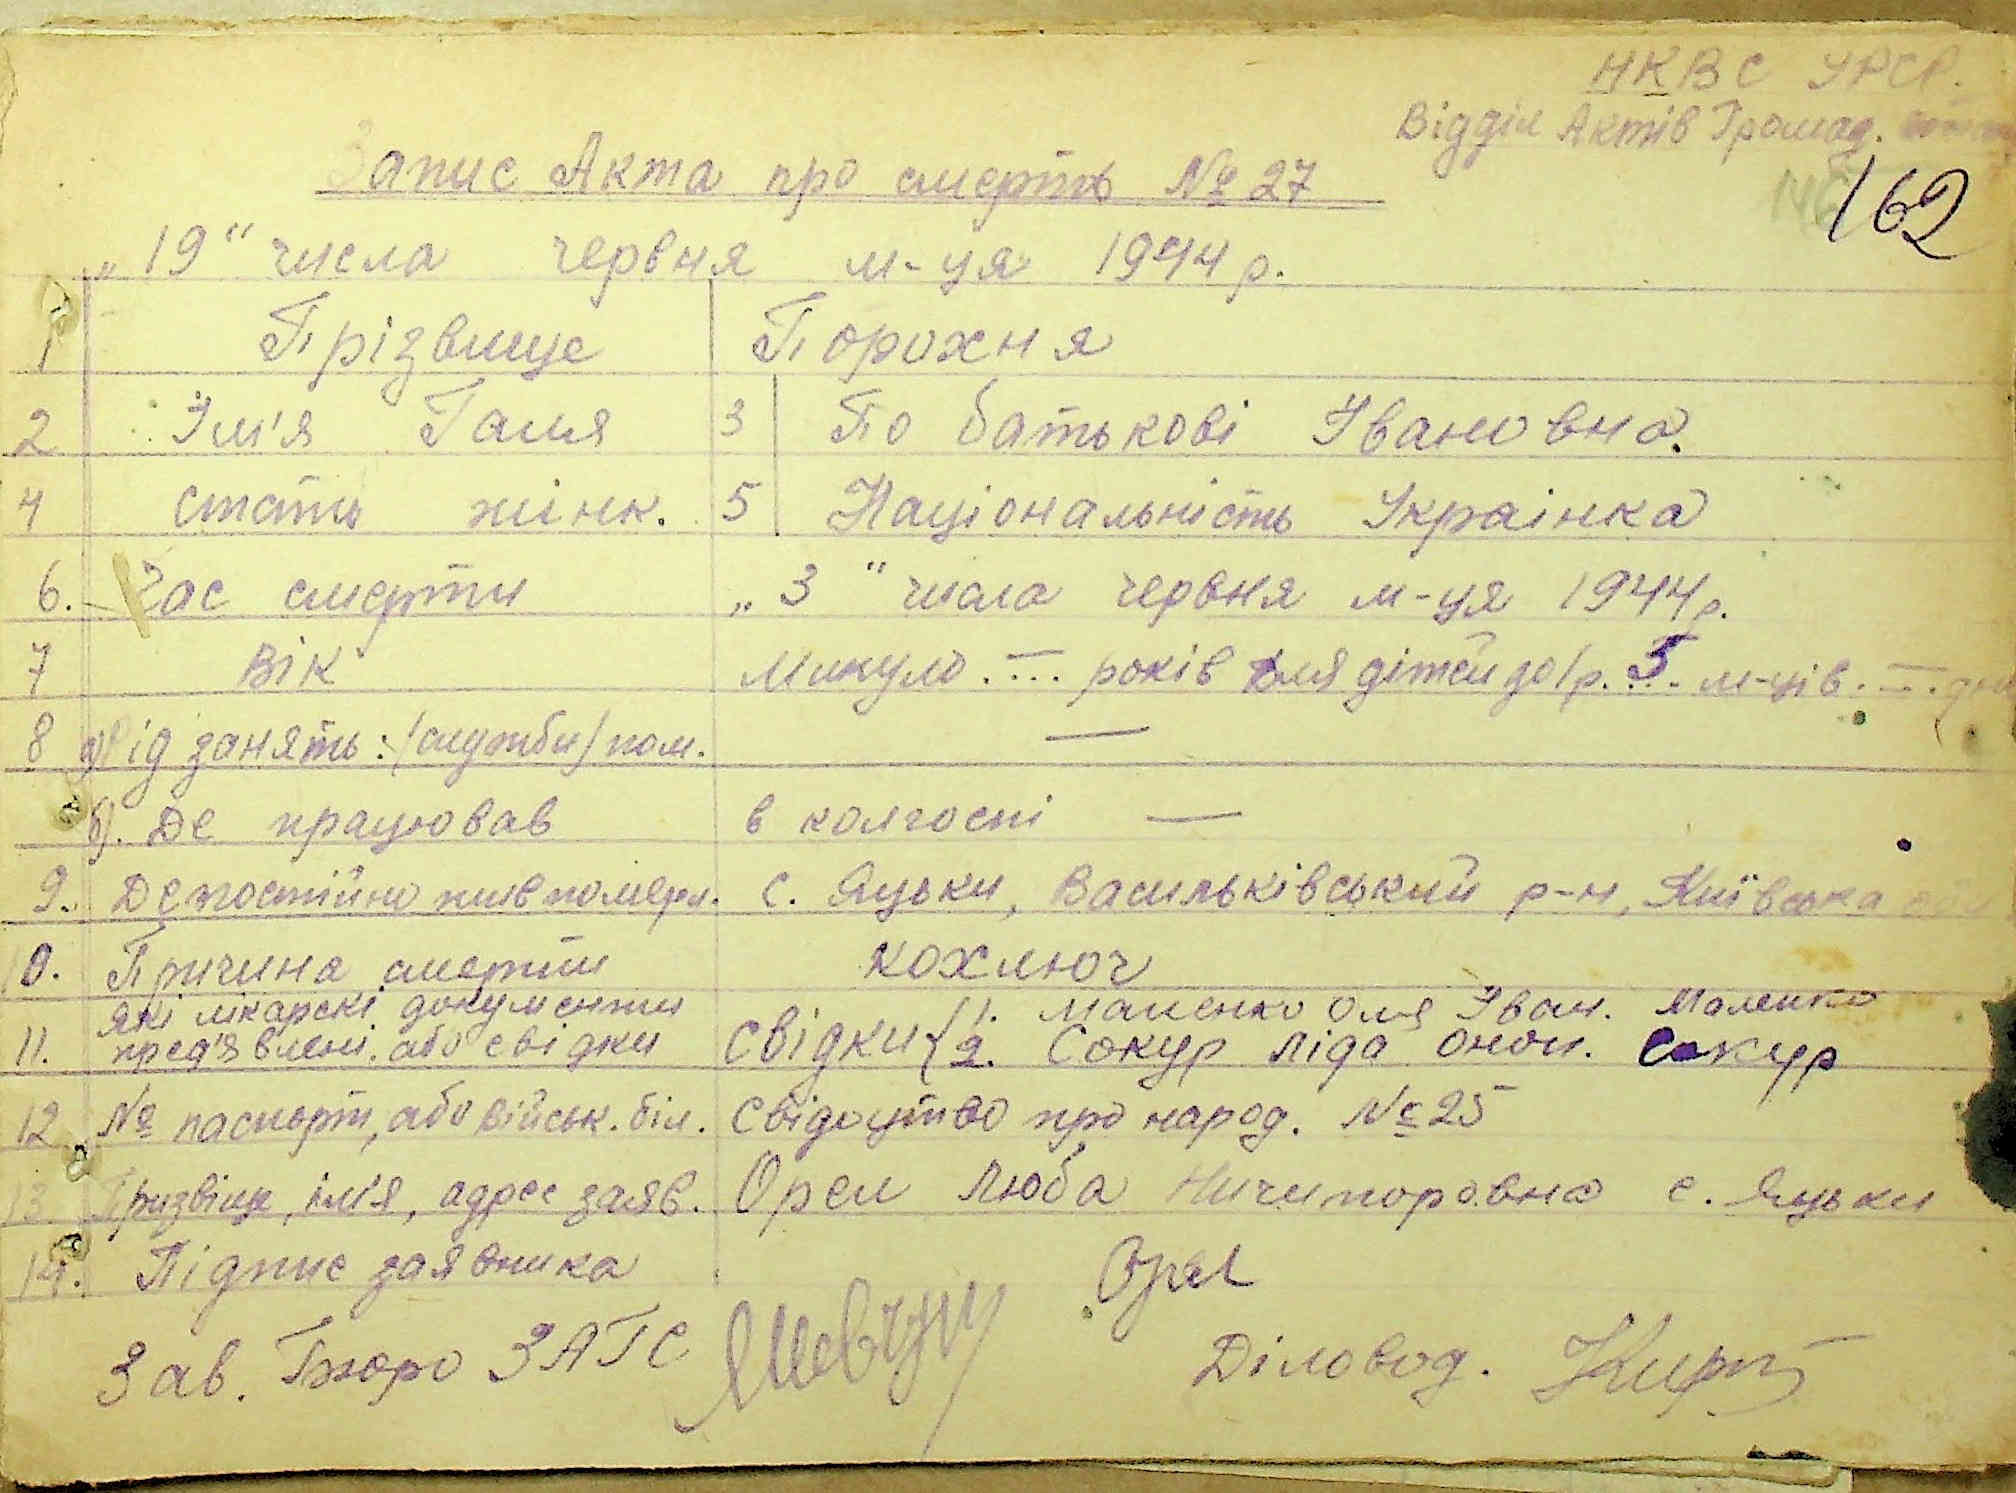 НКВС УРСР.
Відділ Актів Громад.
162
Запис Акта про смерть № 27
„19" числа червня м-ця 1944 р.
1 Прізвище Порохня
2 Ім'я Галя 3 По батькові Івановна.
4 Стать жінк. 5 Національність Украінка
6. Час смерти „3" числа червня м-ця 1944 р.
7 Вік Минуло .—... років для дітей до 1 р. 5 м-ців .—.. дн
8 а) Рід занять: (служби) пом. —
б). Де працював в колгоспі —
9. Де постійно жив померл. с. Яцьки, Васильківський р-н, Київська
10. Причина смерти коключ
Які лікарскі документи
11. пред'явлені, або свідки Свідки { 1. Маленко Оля Іван. Маленко
2. Сокур Ліда Сокур
12 № паспорт, або військ. біл. Свідоцтво про народ. № 25
13 Призвіще, імія, адрес заяв. Орел Люба Ничипоровна с. Яцьки
14. Підпис заявника Орел
Зав. Бюро ЗАГС Діловод.